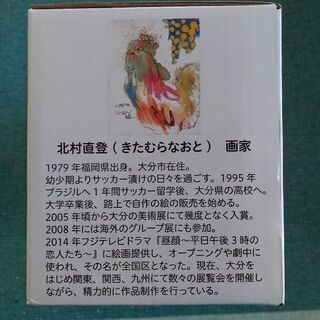 北村直登 ( きたむらなおと ) 画家
1979 年福岡県出身。大分市在住。
幼少期よりサッカー漬けの日々を過ごす。1995 年
ブラジルへ 1 年間サッカー留学後、大分県の高校へ。
大学卒業後、路上で自作の絵の販売を始める。
2005 年頃から大分の美術展にて幾度となく入賞。
2008 年には海外のグループ展にも参加。
2014 年フジテレビドラマ『昼顔～平日午後 3 時の
恋人たち～』に絵画提供し、オープニングや劇中に
使われ、その名が全国区となった。現在、大分を
はじめ関東、関西、九州にて数々の展覧会を開催し
ながら、精力的に作品制作を行っている。